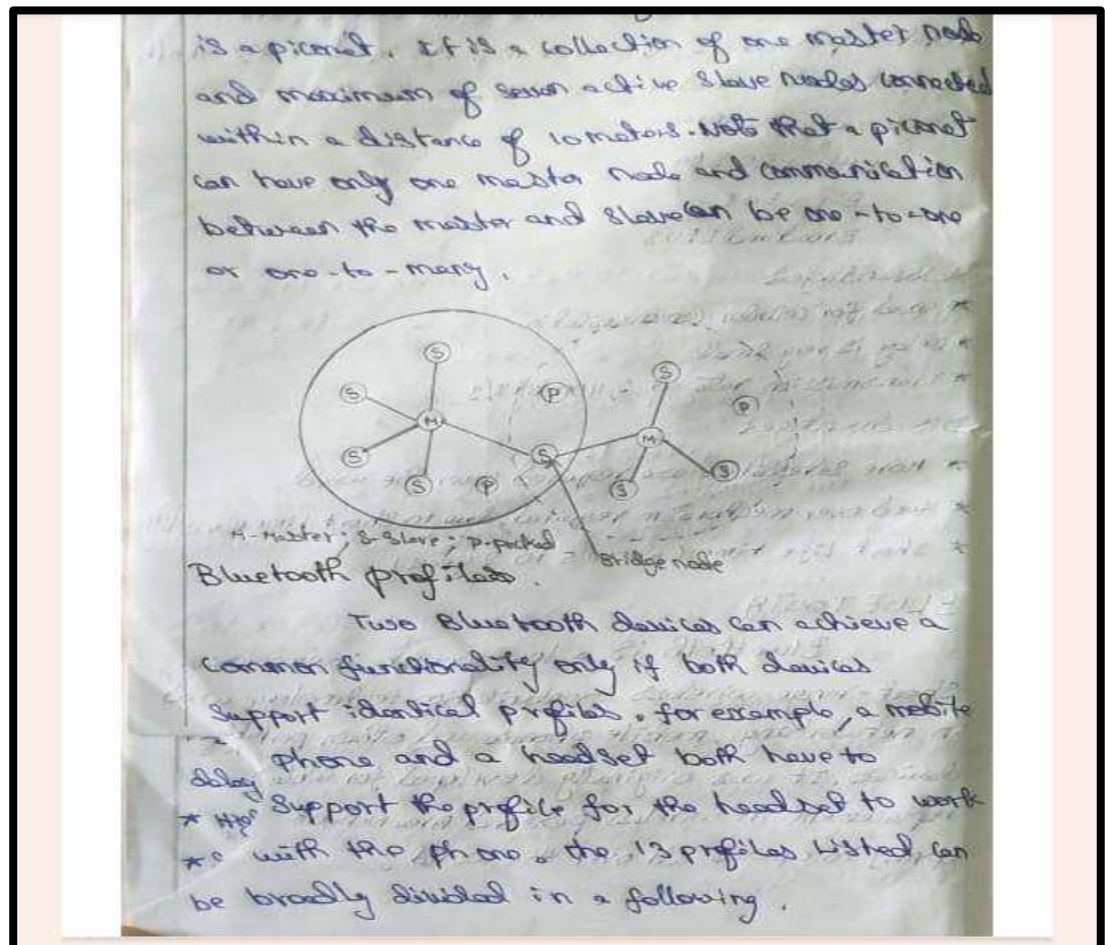 is a piconet. It is a collection of one master node
and maximum of seven active slave nodes connected
within a distance of 10 meters. Note that a piconet
can have only one master node and communication
between the master and slave can be one-to-one
or one-to-many.
S
S
S
P
S
P
M
M
S
S
S
S
P
S
M-Master; S-Slave; P-parked
Bridge node
Bluetooth profiles.
Two Bluetooth devices can achieve a
common functionality only if both devices
support identical profiles. for example, a mobile
phone and a headset both have to
delay
support the profile for the headset to work
with the phone. the 13 profiles listed can
be broadly divided in a following.